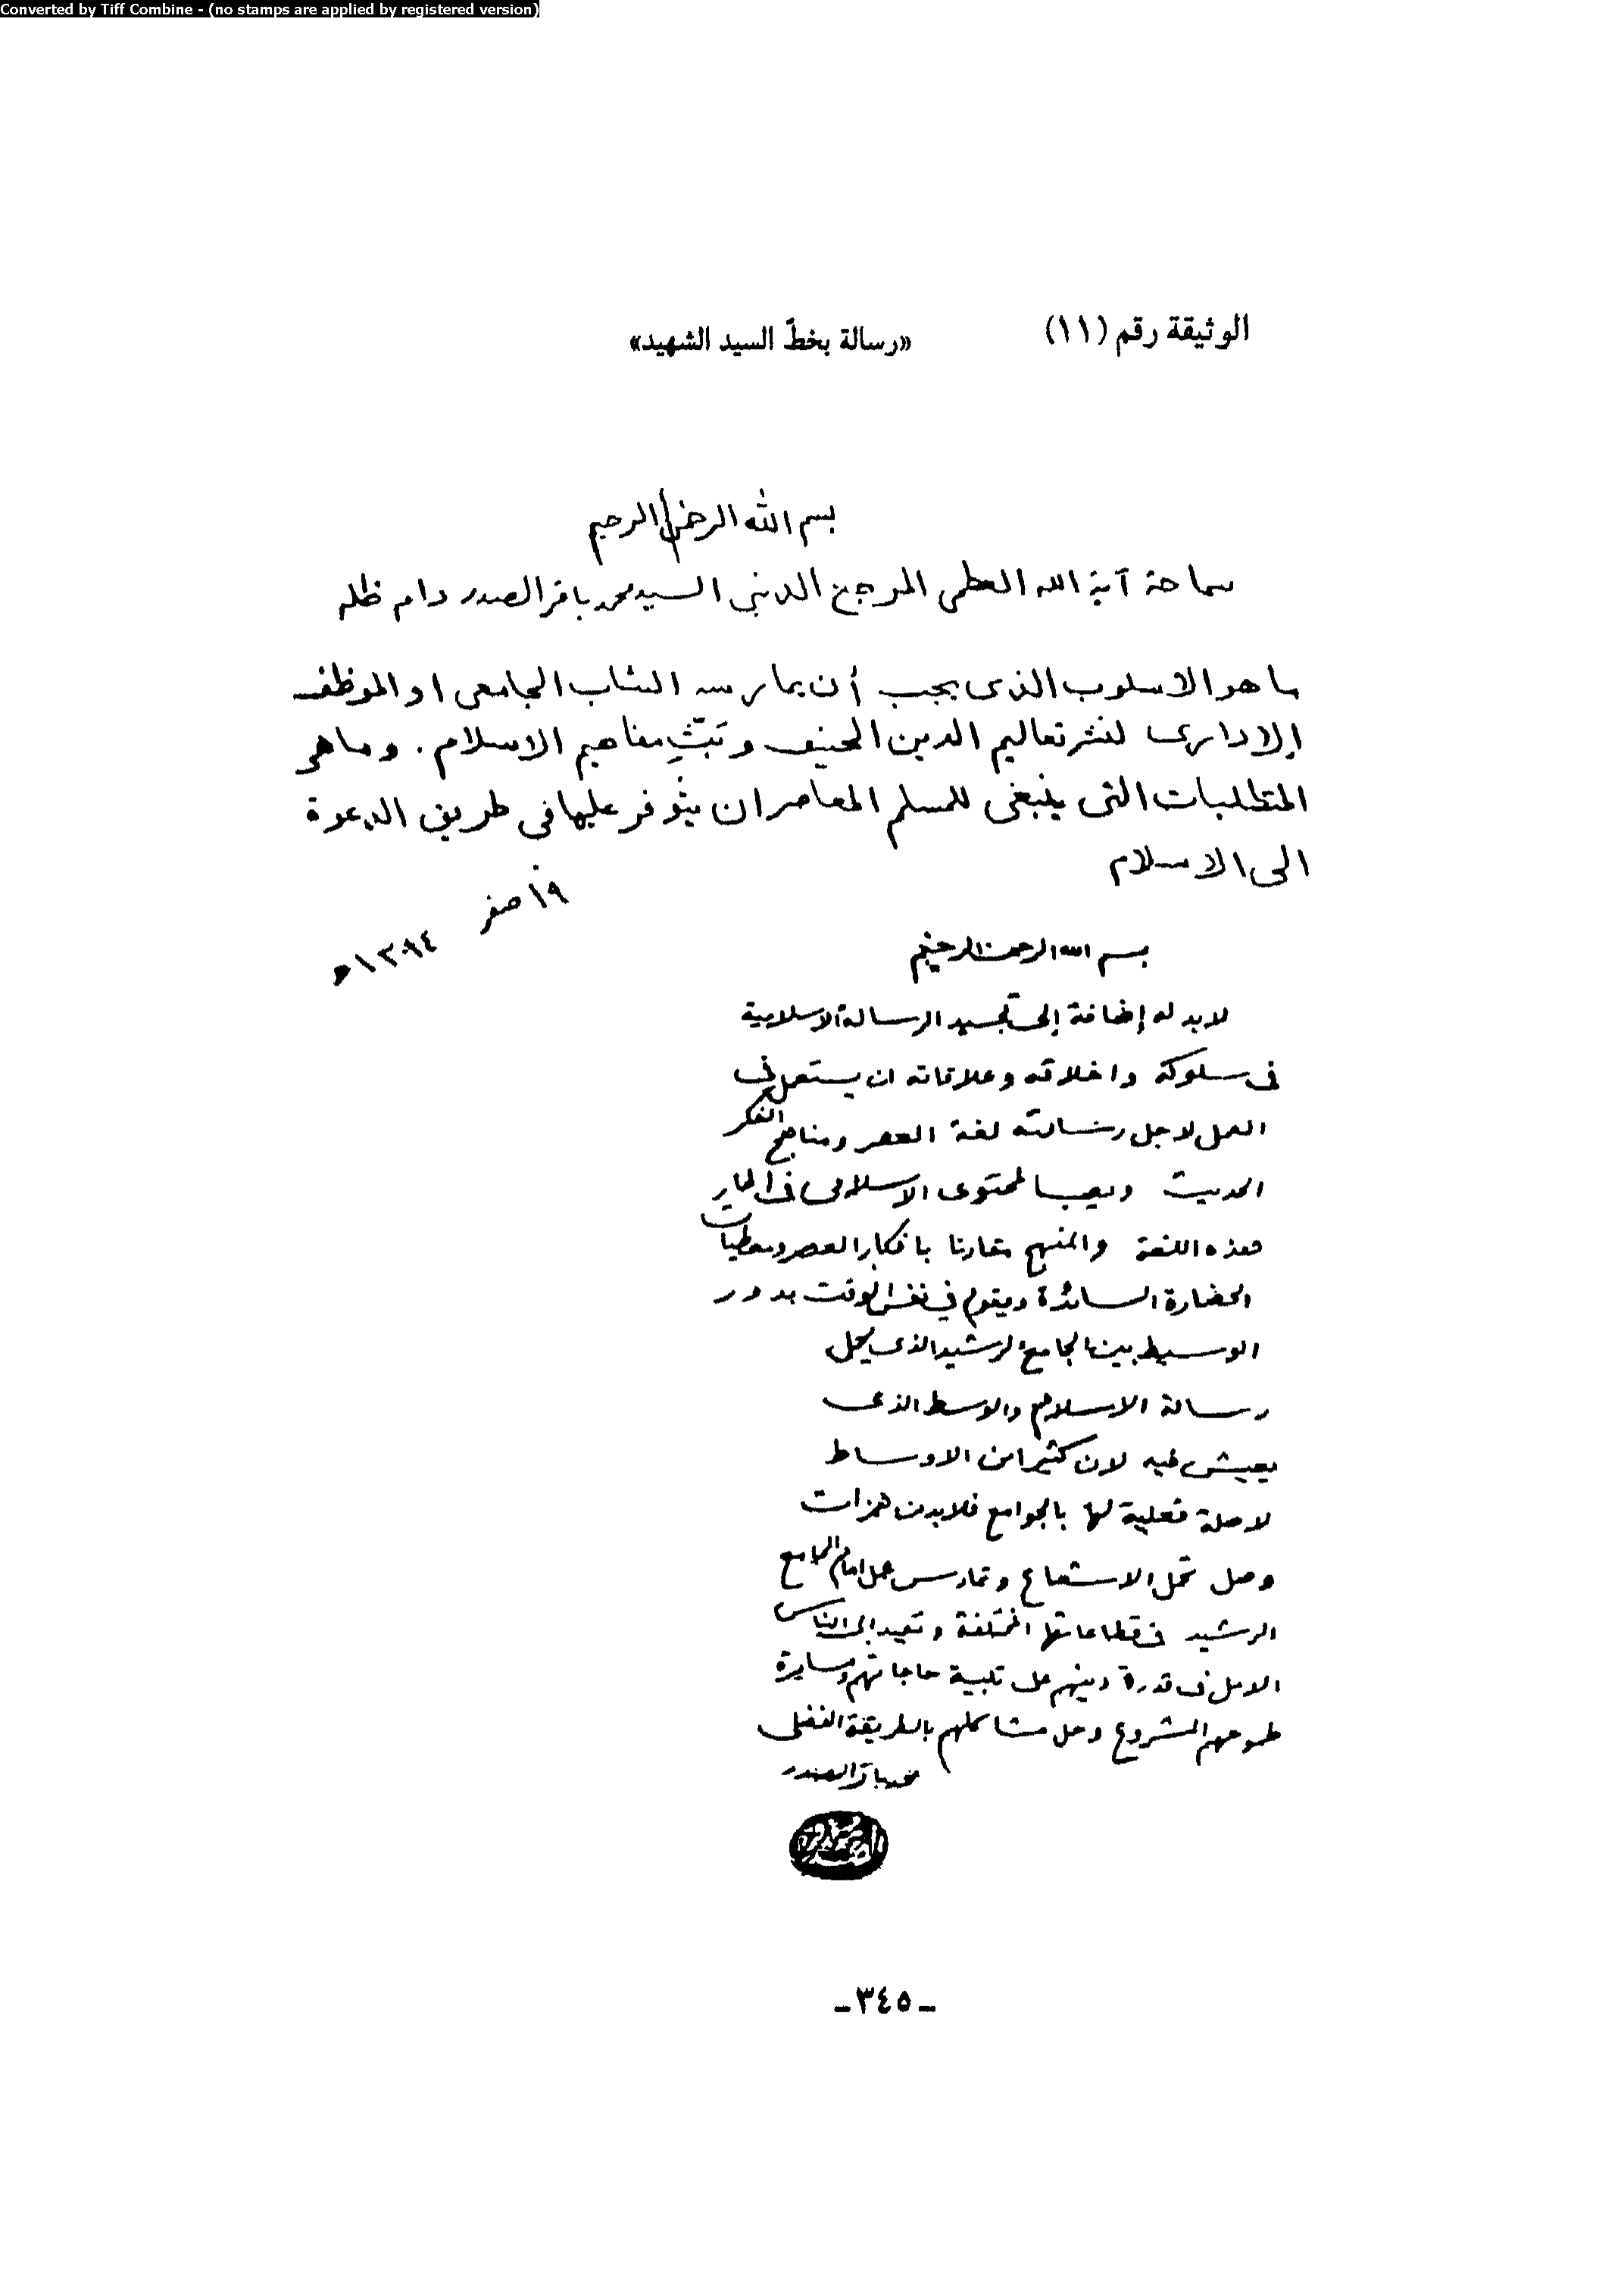 Converted by Tiff Combine - (no stamps are applied by registered version)
الوثيقة رقم (١١) «رسالة بخطّ السيد الشهيد»
بسم الله الرحمن الرحيم
سماحة آية الله العظمى المرجع الديني السيد محمد باقر الصدر دام ظله
ما هو الاسلوب الذي يجب أن يمارسه الشاب الجامعي او الموظف
الإداري لنشر تعاليم الدين الحنيف وبثّ مفاهيم الاسلام . وما هي
المتطلبات التي ينبغي للمسلم المعاصر ان يتوفر عليها في طريق الدعوة
الى الاسلام
١٩ صفر
١٣٩٤ هـ
بسم الله الرحمن الرحيم
لابد له إضافة إلى تجسيد الرسالة الاسلامية
في سلوكه واخلاقه وعلاقاته ان يستعمل في
العمل لاجل رسالته لغة العصر ومناهج الفكر
الحديث ويصب المحتوى الاسلامي في اطار
هذه اللغة والمنهج مقارنا بافكار العصر ومعطيات
الحضارة السائدة ويقوم في نفس الوقت بدور
الوسيط بين الجامع الرشيد الذي يحمل
رسالة الاسلام والوسط الذي
يعيش فيه لان كثيرا من الاوساط
لا صلة فعلية لها بالجوامع فلابد من همزات
وصل تحمل الاشعاع وتمارس عمل امام الجامع
الرشيد في قطاعاتها المختلفة وتعيد إلى الناس
الامل في قدرة دينهم على تلبية حاجاتهم ومسايرة
طموحهم المشروع وحل مشاكلهم بالطريقة الفضلى
محمد باقر الصدر
ـ ٣٤٥ ـ